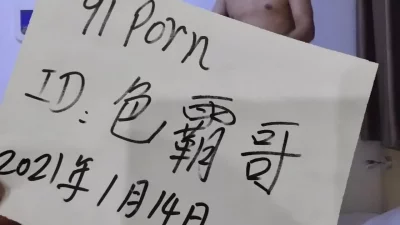 91 Porn
ID：色霸哥
2021年1月14日